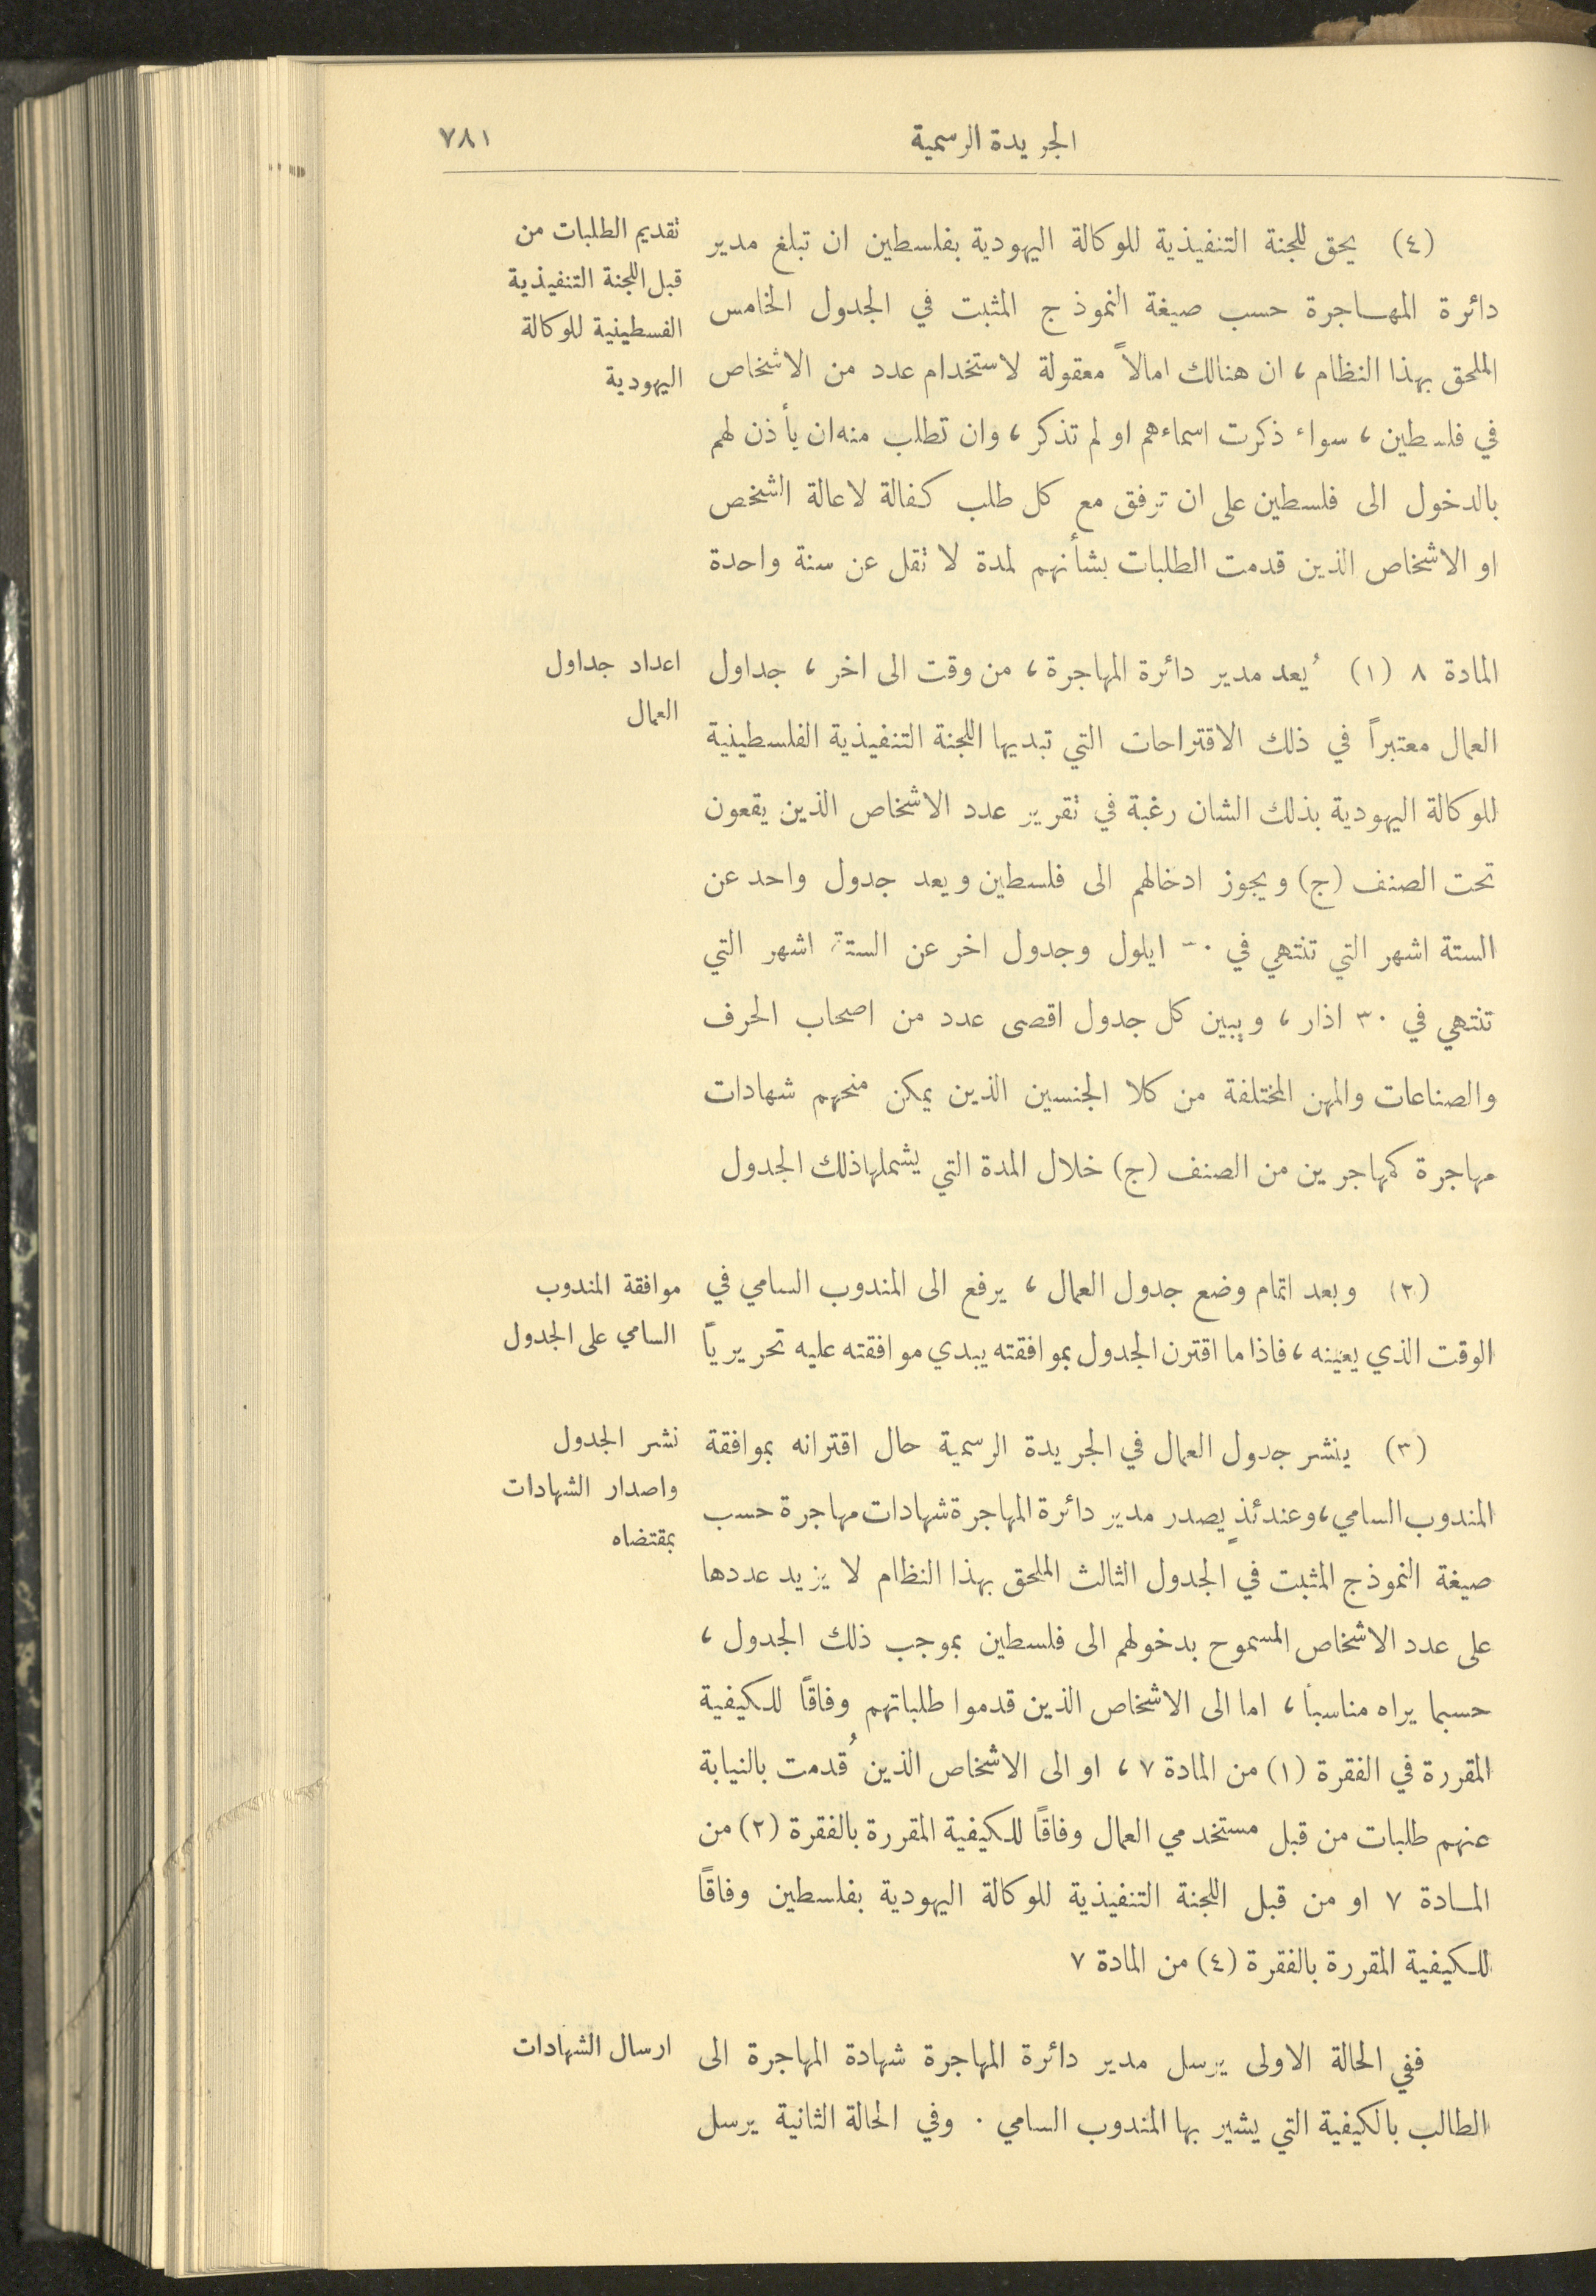 الجريدة الرسمية
٧٨١
(٤) يحق للجنة التنفيذية للوكالة اليهودية بفلسطين ان تبلغ مدير
دائرة المهاجرة حسب صيغة النموذج المثبت في الجدول الخامس
الملحق بهذا النظام ، ان هنالك امالاً معقولة لاستخدام عدد من الاشخاص
في فلسطين ، سواء ذكرت اسماءهم او لم تذكر ، وان تطلب منه ان يأذن لهم
بالدخول الى فلسطين على ان ترفق مع كل طلب كفالة لاعالة الشخص
او الاشخاص الذين قدمت الطلبات بشأنهم لمدة لا تقل عن سنة واحدة
تقديم الطلبات من
قبل اللجنة التنفيذية
الفسطينية للوكالة
اليهودية
المادة ٨ (١) يُعد مدير دائرة المهاجرة ، من وقت الى اخر ، جداول
العمال معتبراً في ذلك الاقتراحات التي تبديها اللجنة التنفيذية الفلسطينية
للوكالة اليهودية بذلك الشان رغبة في تقرير عدد الاشخاص الذين يقعون
تحت الصنف (ج) ويجوز ادخالهم الى فلسطين ويعد جدول واحد عن
الستة اشهر التي تنتهي في ايلول وجدول اخر عن الستة اشهر التي
تنتهي في ٣٠ اذار ، ويبين كل جدول اقصى عدد من اصحاب الحرف
والصناعات والمهن المختلفة من كلا الجنسين الذين يمكن منحهم شهادات
مهاجرة كمهاجرين من الصنف (ج) خلال المدة التي يشملها ذلك الجدول
اعداد جداول
العمال
(٢) وبعد اتمام وضع جدول العمال ، يرفع الى المندوب السامي في
الوقت الذي يعينه ، فاذا ما اقترن الجدول بموافقته يبدي موافقته عليه تحريرياً
موافقة المندوب
السامي على الجدول
(٣) ينشر جدول العمال في الجريدة الرسمية حال اقترانه بموافقة
المندوب السامي ، وعندئذٍ يصدر مدير دائرة المهاجرة شهادات مهاجرة حسب
صيغة النموذج المثبت في الجدول الثالث الملحق بهذا النظام لا يزيد عددها
على عدد الاشخاص المسموح بدخولهم الى فلسطين بموجب ذلك الجدول ،
حسبما يراه مناسباً ، اما الى الاشخاص الذين قدموا طلباتهم وفاقاً للكيفية
المقررة في الفقرة (١) من المادة ٧ ، او الى الاشخاص الذين قُدمت بالنيابة
عنهم طلبات من قبل مستخدمي العمال وفاقاً للكيفية المقررة بالفقرة (٢) من
المادة ٧ او من قبل اللجنة التنفيذية للوكالة اليهودية بفلسطين وفاقاً
للكيفية المقررة بالفقرة (٤) من المادة ٧
نشر الجدول
واصدار الشهادات
بمقتضاه
ففي الحالة الاولى يرسل مدير دائرة المهاجرة شهادة المهاجرة الى
الطالب بالكيفية التي يشير بها المندوب السامي . وفي الحالة الثانية يرسل
ارسال الشهادات